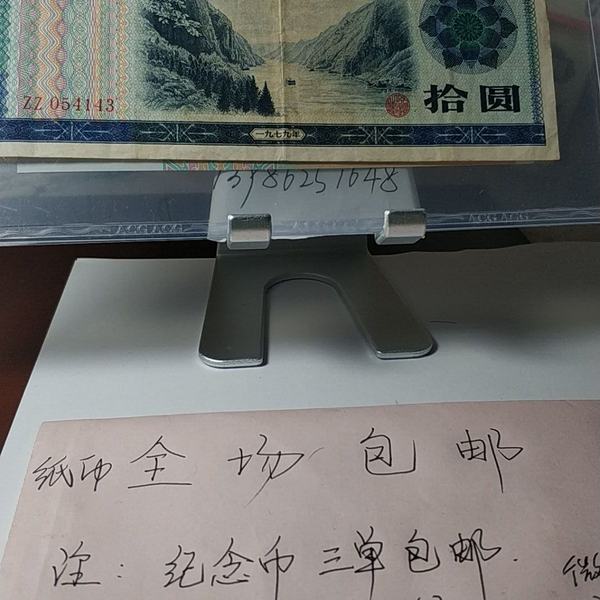 拾圆
ZZ 054143
一九七九年
13986251648
ACGACG ACGACG
纸币全场包邮
注：纪念币三单包邮.
微